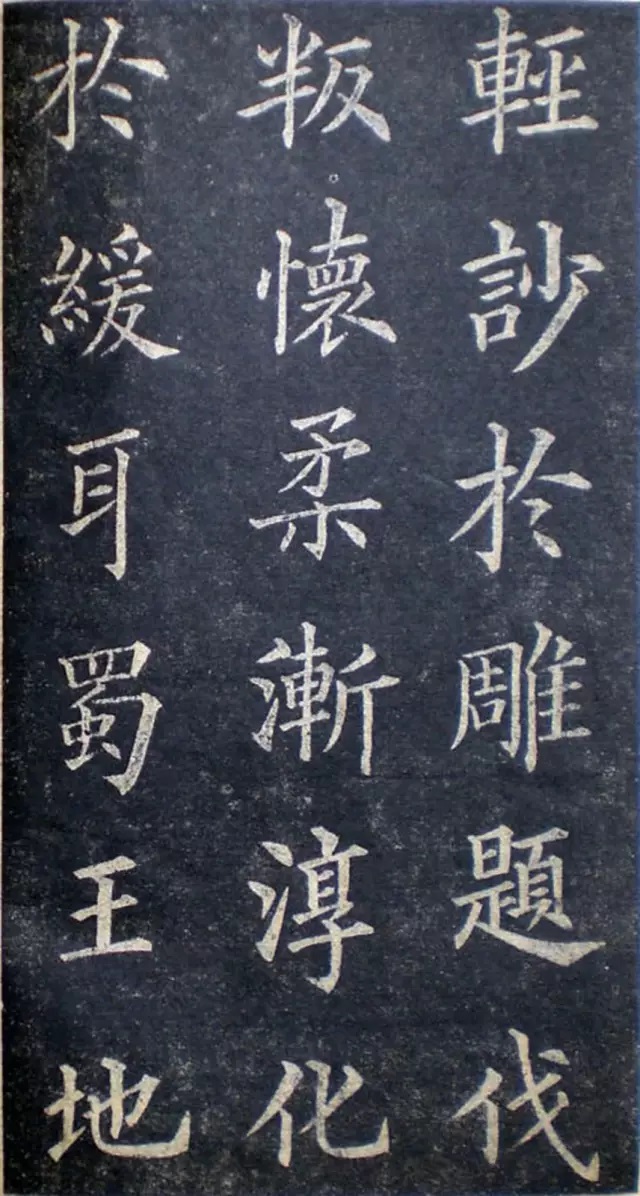 輕訬於雕題伐
叛懷柔漸淳化
於緩耳蜀王地